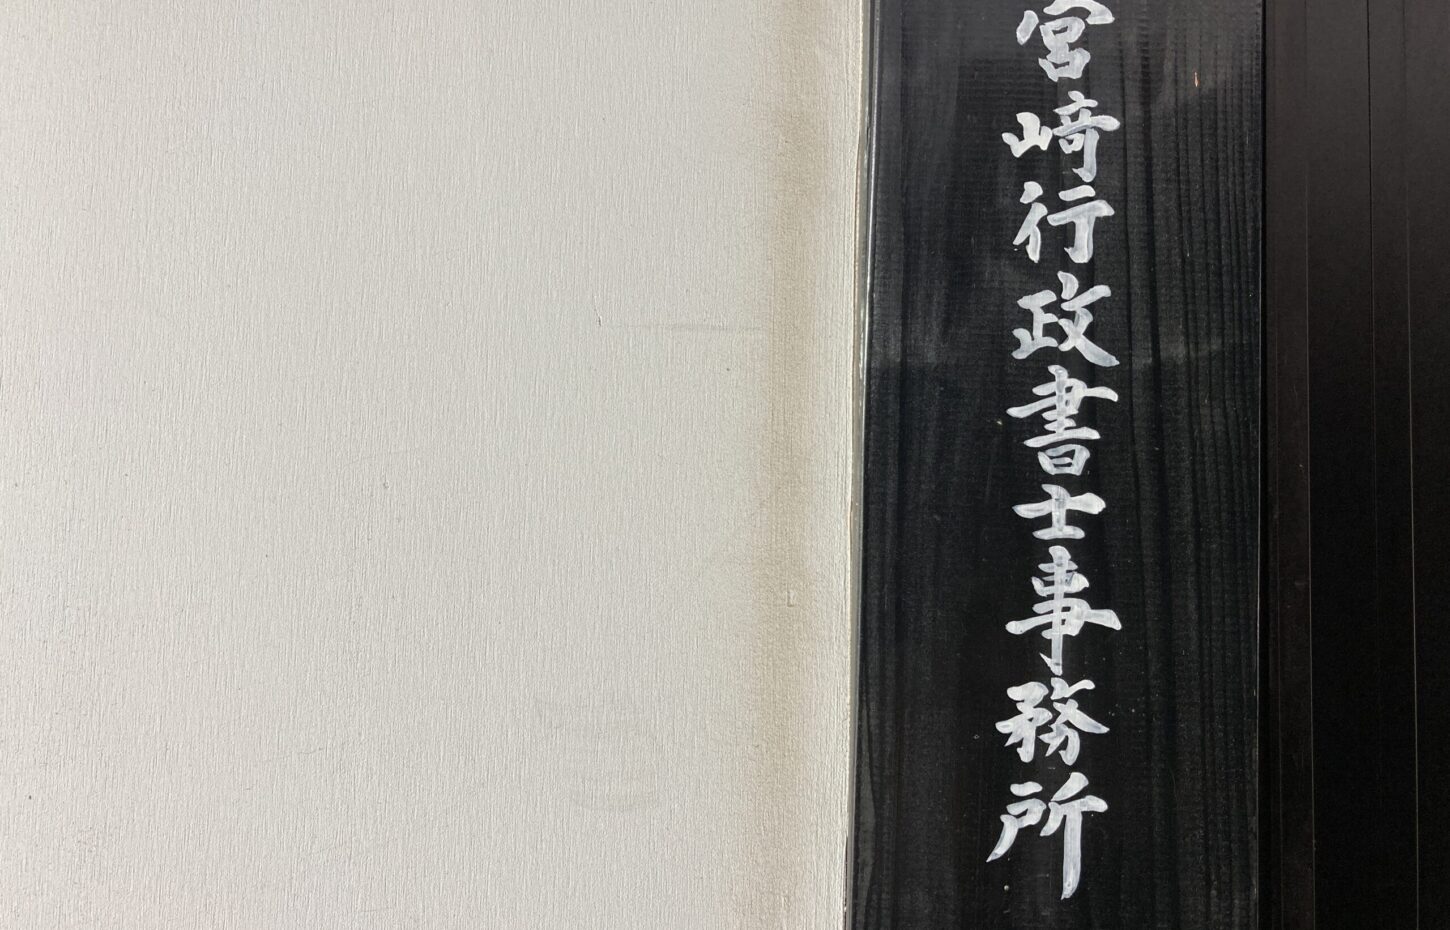 宮﨑行政書士事務所